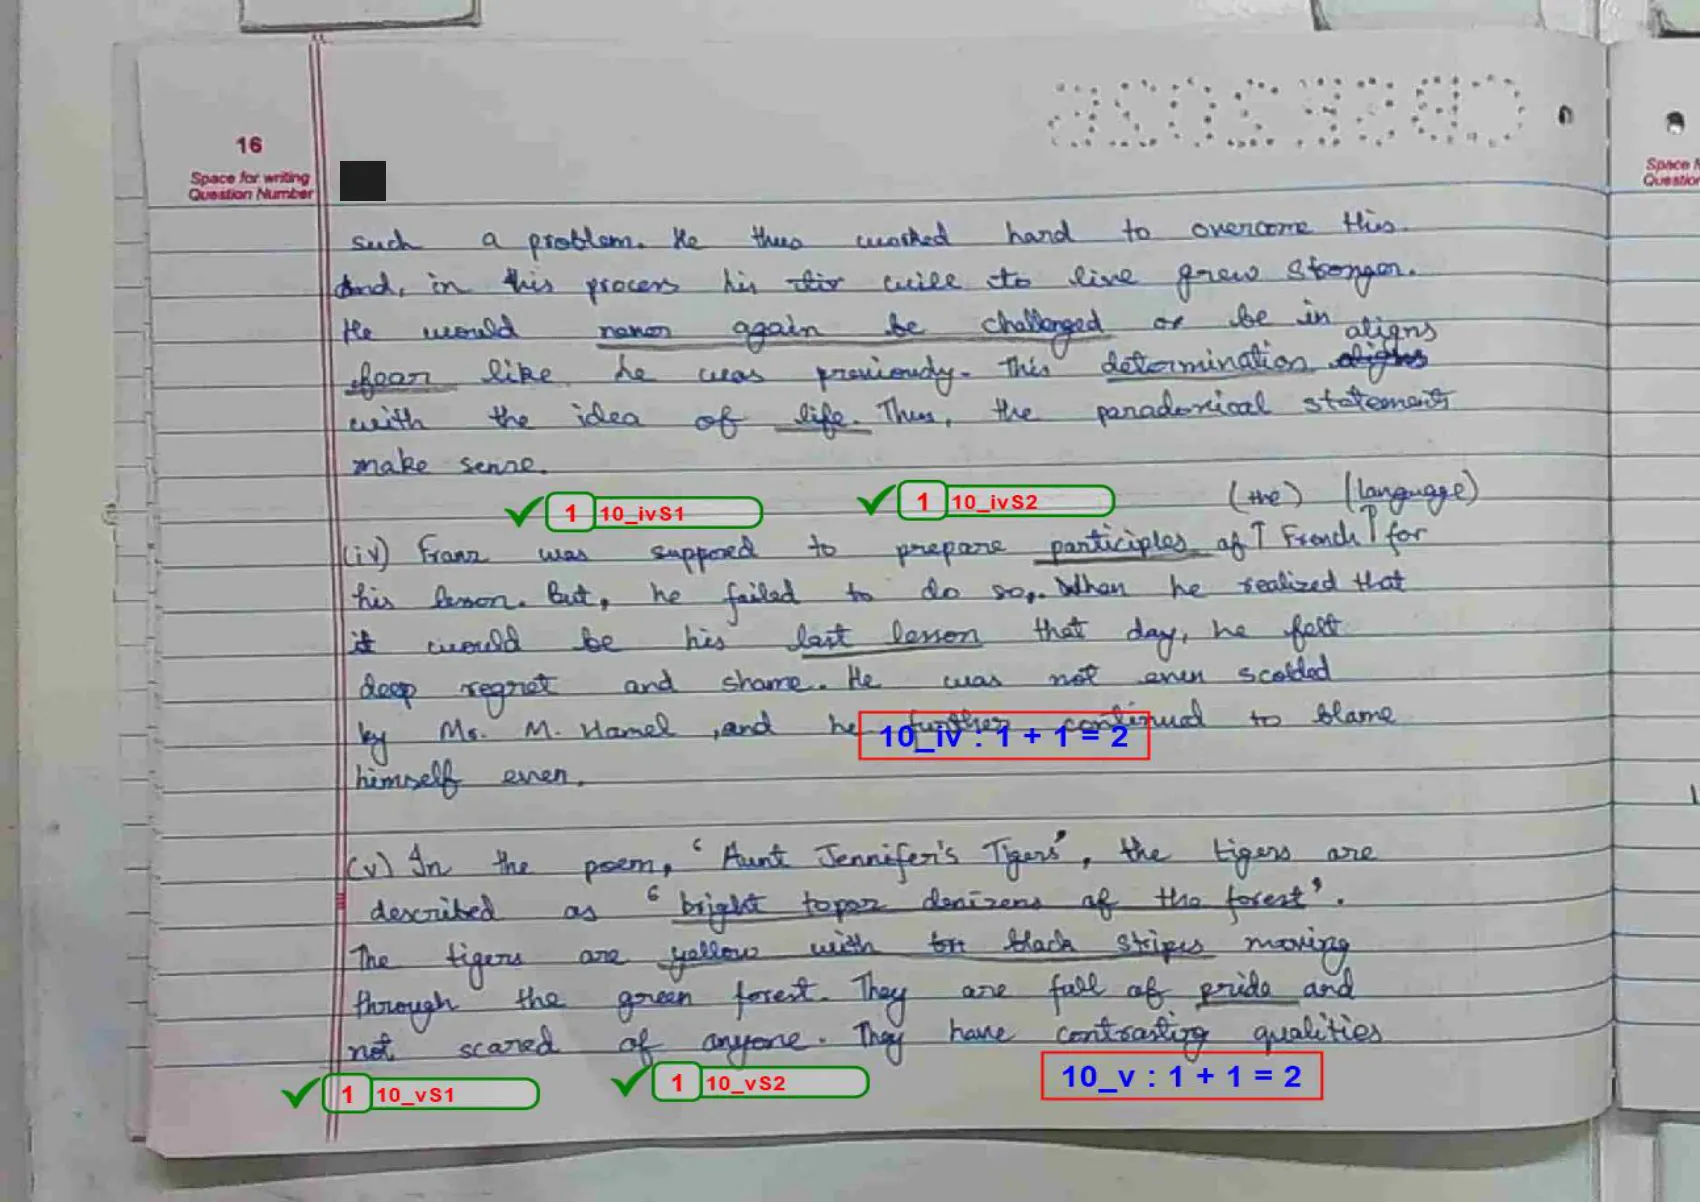 CBSE 2025
16
Space for writing
Question Number
such a problem. He thus worked hard to overcome this.
And, in this process his will to live grew stronger.
He would never again be challenged or be in
fear like he was previously. This determination aligns
with the idea of life. Thus, the paradoxical statements
make sense.
1 10_ivS1 1 10_ivS2
(the) (language)
(iv) Franz was supposed to prepare participles of ↑ French ↑ for
his lesson. But, he failed to do so. When he realized that
it would be his last lesson that day, he felt
deep regret and shame. He was not even scolded
by Mr. M. Hamel, and he further continued to blame
10_iv : 1 + 1 = 2
himself even.
(v) In the poem, 'Aunt Jennifer's Tigers', the tigers are
described as 'bright topaz denizens of the forest'.
The tigers are yellow with black stripes moving
through the green forest. They are full of pride and
not scared of anyone. They have contrasting qualities
1 10_vS1 1 10_vS2 10_v : 1 + 1 = 2
Space
Question